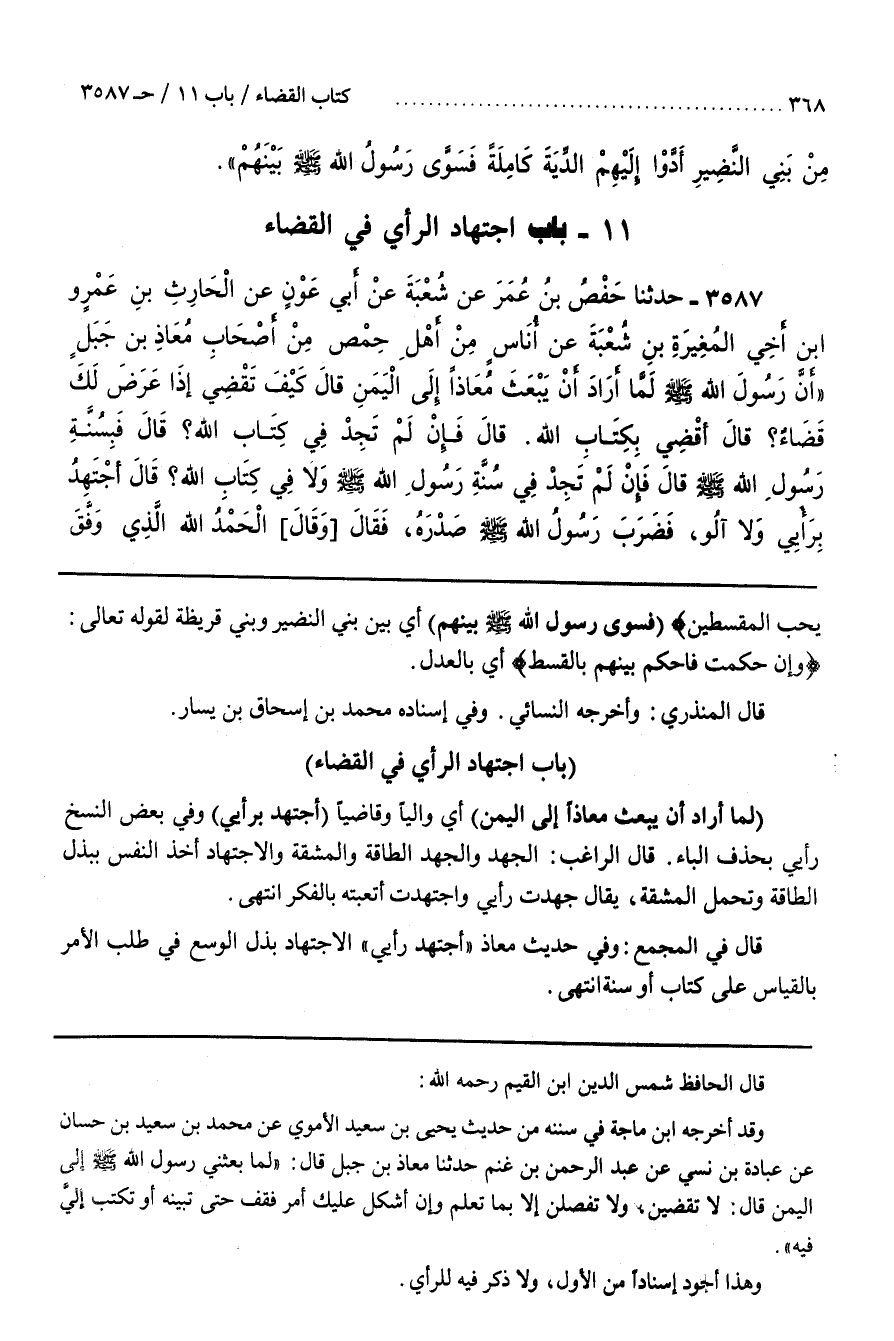 ٣٦٨ ........................................ كتاب القضاء / باب ١١ / حـ ٣٥٨٧
مِنْ بَنِي النَّضِيرِ أَدَّوْا إِلَيْهِمْ الدِّيَةَ كَامِلَةً فَسَوَّى رَسُولُ الله ﷺ بَيْنَهُمْ».
١١ - باب اجتهاد الرأي في القضاء
٣٥٨٧ - حدثنا حَفْصُ بنُ عُمَرَ عن شُعْبَةَ عنْ أَبي عَوْنٍ عن الْحَارِثِ بنِ عَمْرٍو
ابن أَخِي المُغِيرَةِ بنِ شُعْبَةَ عن أُنَاسٍ مِنْ أَهْلِ حِمْصَ مِنْ أَصْحَابِ مُعَاذِ بن جَبَلٍ
«أَنَّ رَسُولَ الله ﷺ لَمَّا أَرَادَ أَنْ يَبْعَثَ مُعَاذاً إِلَى الْيَمَنِ قالَ كَيْفَ تَقْضِي إذَا عَرَضَ لَكَ
قَضَاءٌ؟ قالَ أقْضِي بِكِتَابِ الله. قالَ فَإِنْ لَمْ تَجِدْ فِي كِتَابِ الله؟ قَالَ فَبِسُنَّةِ
رَسُولِ الله ﷺ قالَ فَإِنْ لَمْ تَجِدْ فِي سُنَّةِ رَسُولِ الله ﷺ وَلَا فِي كِتَابِ الله؟ قَالَ أجْتَهِدُ
بِرَأْيِي وَلا آلُو، فَضَرَبَ رَسُولُ الله ﷺ صَدْرَهُ، فَقَالَ [وَقَالَ] الْحَمْدُ الله الَّذِي وَفَّقَ
يحب المقسطين﴾ (فسوى رسول الله ﷺ بينهم) أي بين بني النضير وبني قريظة لقوله تعالى:
﴿وإن حكمت فاحكم بينهم بالقسط﴾ أي بالعدل.
قال المنذري: وأخرجه النسائي. وفي إسناده محمد بن إسحاق بن يسار.
(باب اجتهاد الرأي في القضاء)
(لما أراد أن يبعث معاذاً إلى اليمن) أي والياً وقاضياً (أجتهد برأيي) وفي بعض النسخ
رأيي بحذف الباء. قال الراغب: الجهد والجهد الطاقة والمشقة والاجتهاد أخذ النفس ببذل
الطاقة وتحمل المشقة، يقال جهدت رأيي واجتهدت أتعبته بالفكر انتهى.
قال في المجمع: وفي حديث معاذ «أجتهد رأيي» الاجتهاد بذل الوسع في طلب الأمر
بالقياس على كتاب أو سنة انتهى.
قال الحافظ شمس الدين ابن القيم رحمه الله:
وقد أخرجه ابن ماجة في سننه من حديث يحيى بن سعيد الأموي عن محمد بن سعيد بن حسان
عن عبادة بن نسي عن عبد الرحمن بن غنم حدثنا معاذ بن جبل قال: «لما بعثني رسول الله ﷺ إلى
اليمن قال: لا تقضين، ولا تفصلن إلا بما تعلم وإن أشكل عليك أمر فقف حتى تبينه أو تكتب إليَّ
فيه».
وهذا أجود إسناداً من الأول، ولا ذكر فيه للرأي.